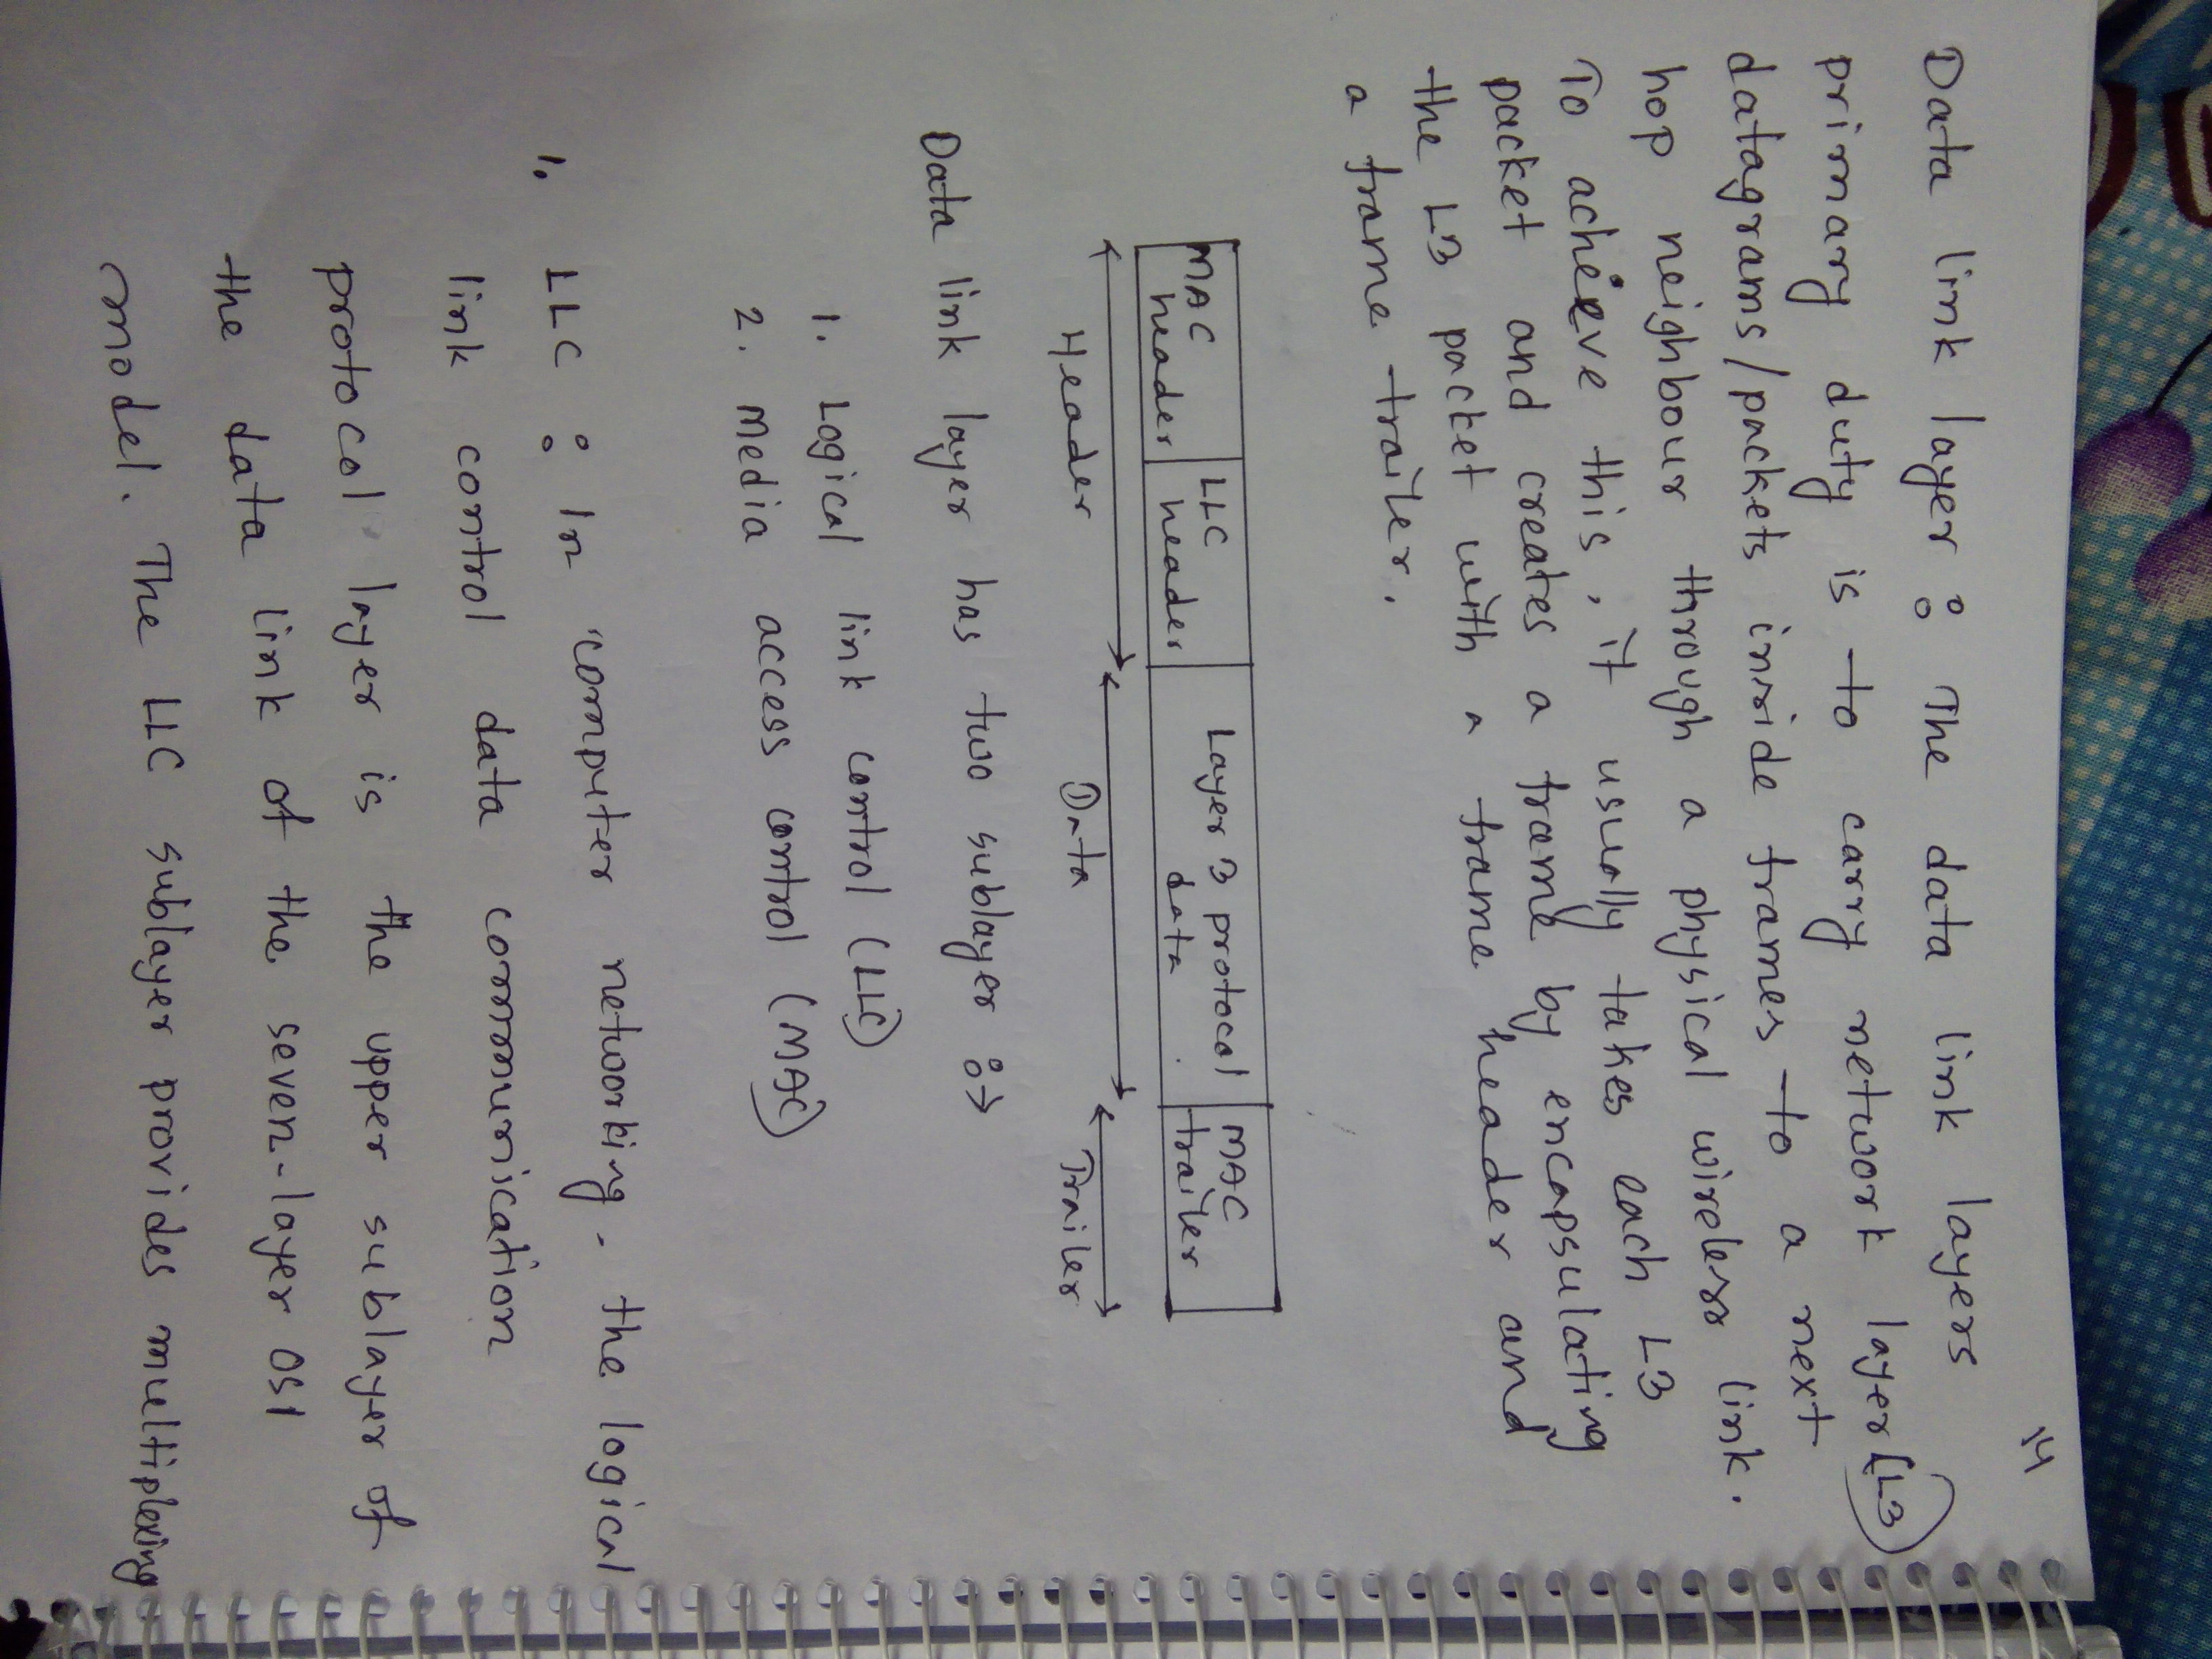 14
Data link layer : The data link layers
primary duty is to carry network layer (L3)
datagrams/packets inside frames to a next
hop neighbour through a physical wireless link.
To acheive this, it usually takes each L3
packet and creates a frame by encapsulating
the L3 packet with a frame header and
a frame trailer.
MAC header LLC header Layer 3 protocol data MAC trailer
Header Data Trailer
Data link layer has two sublayer :→
1. Logical link control (LLC)
2. Media access control (MAC)
1. LLC : In computer networking, the logical
link control data communication
protocol layer is the upper sublayer of
the data link of the seven-layer OSI
model. The LLC sublayer provides multiplexing